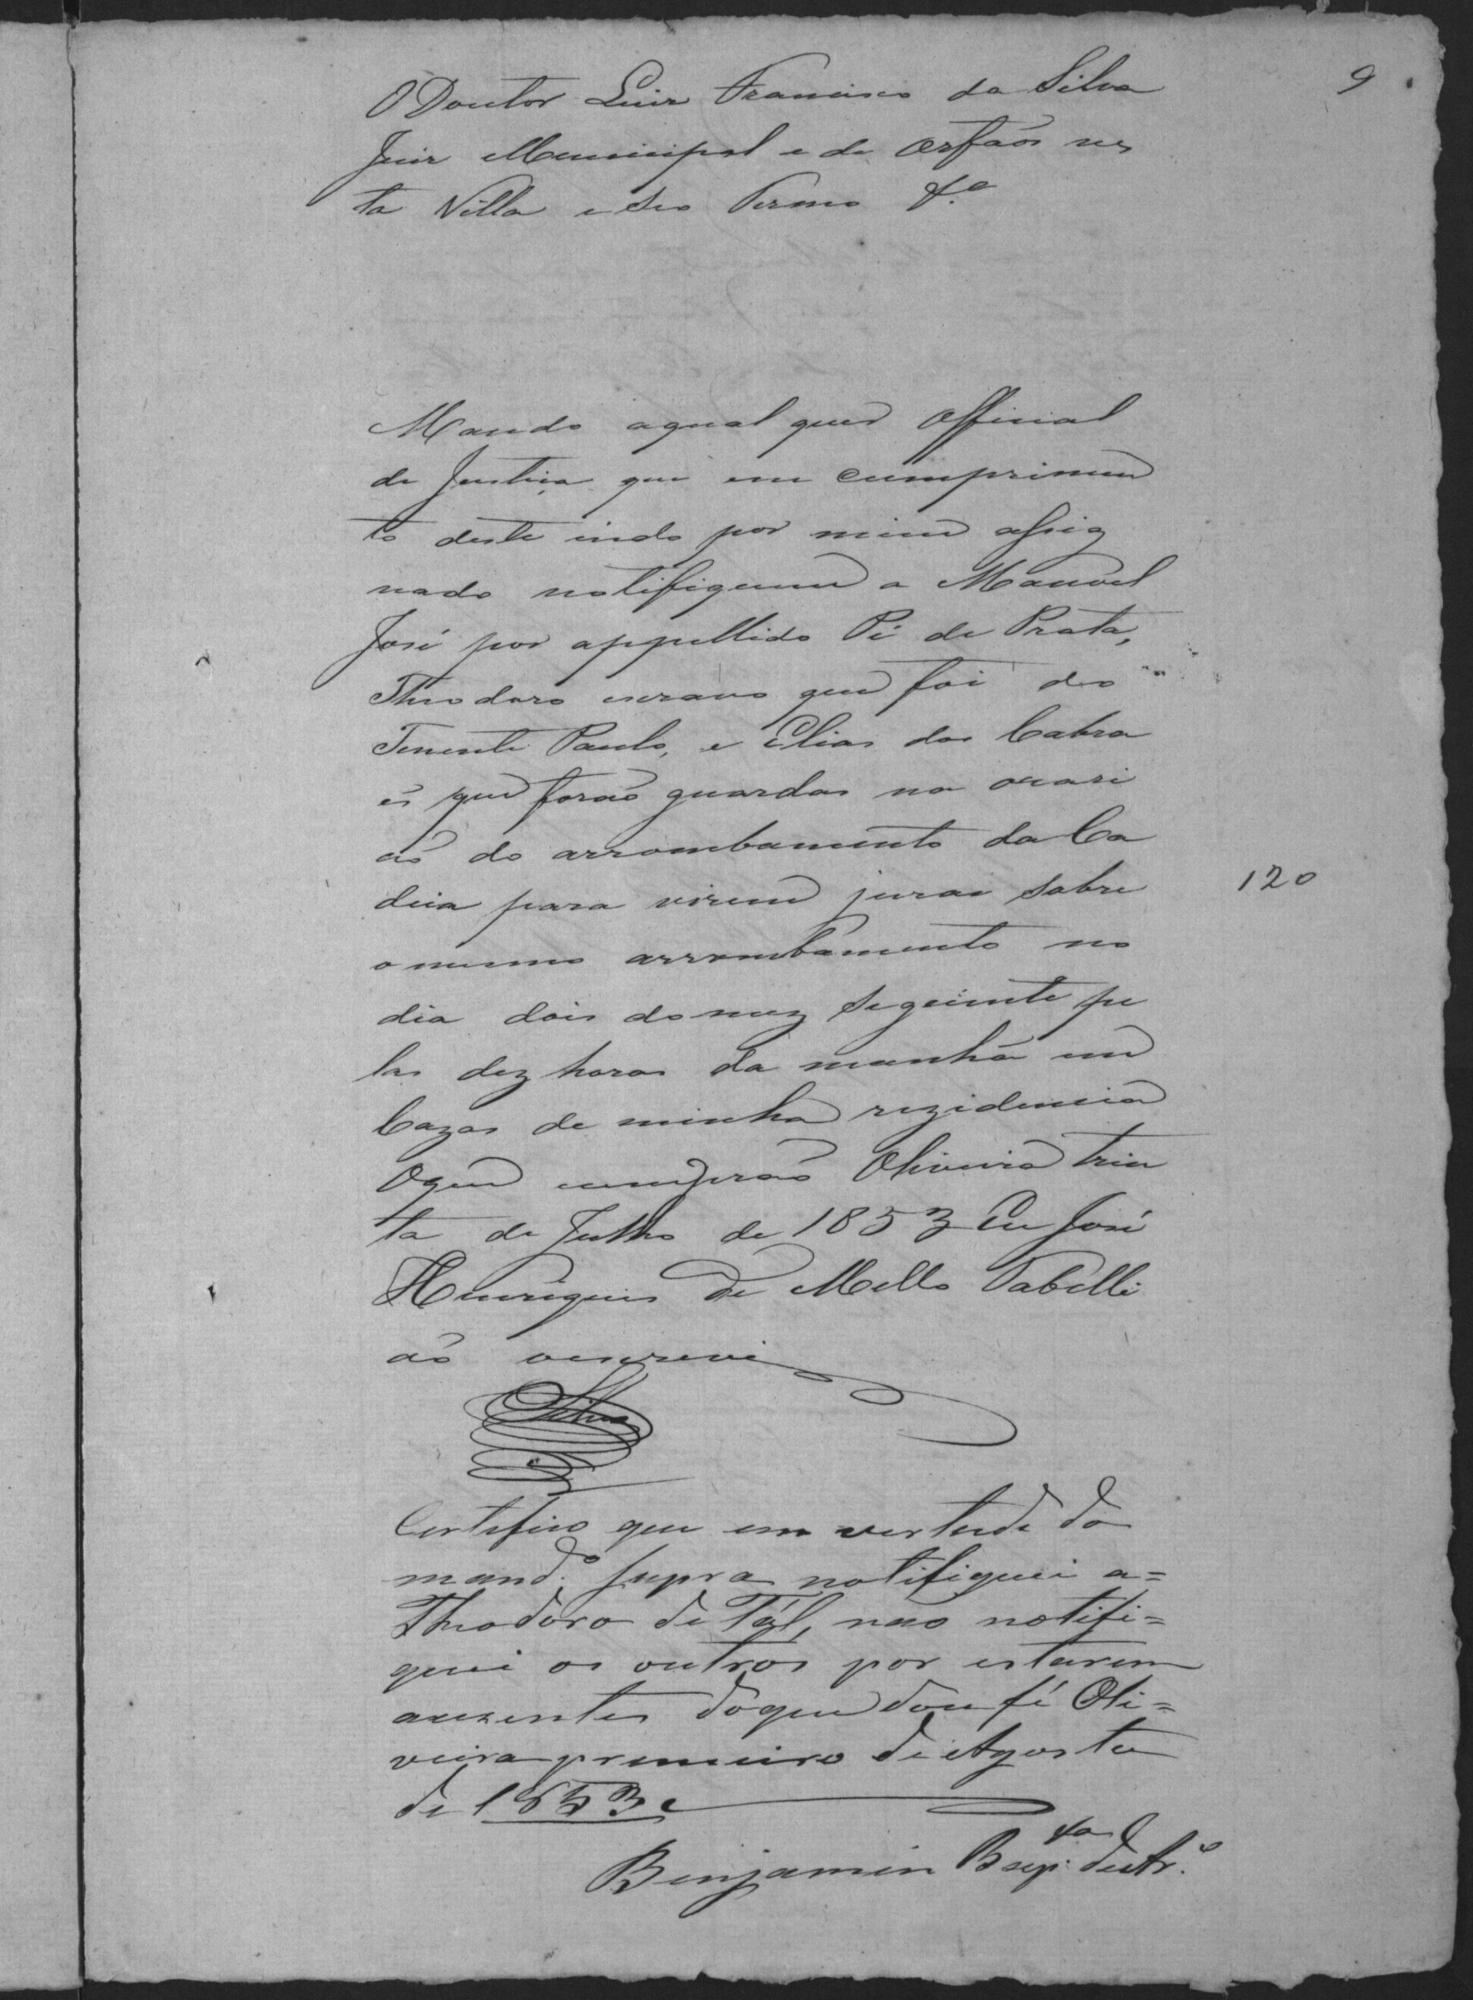 9
O Doutor Luis Francisco da Silva
Juis Municipal e de Orfaõs nes
ta Villa e seo Termo &.ª
Mando aqual quer Official
de Justiça que em cumprimen
to deste indo por mim assig
nado notifiquem a Manoel
José por appellido Pé de Prata,
Theodoro escravo que foi do
Tenente Paulo, e Elias dos Cabra
es que foraõ guardas na ocasi
aõ do arrombamento da Ca
deia para virem jurar sobre
120
o mesmo arrombamento no
dia dois do mez seguinte pe
las dez horas da manhã em
Cazas de minha rezidencia
Oque cumpraõ Oliveira trin
ta de Julho de 1853 Eu José
Henriques de Mello Tabelli
aõ oescrevi
Silva
Certifico que em vertude do
mand.º supra notifiquei a=
Theodoro de Tal, nao notifi=
quei os outros por estarem
auzentes doque dou fé Oli=
veira premeiro de Agosto
de 1853
Benjamin Bap.ta